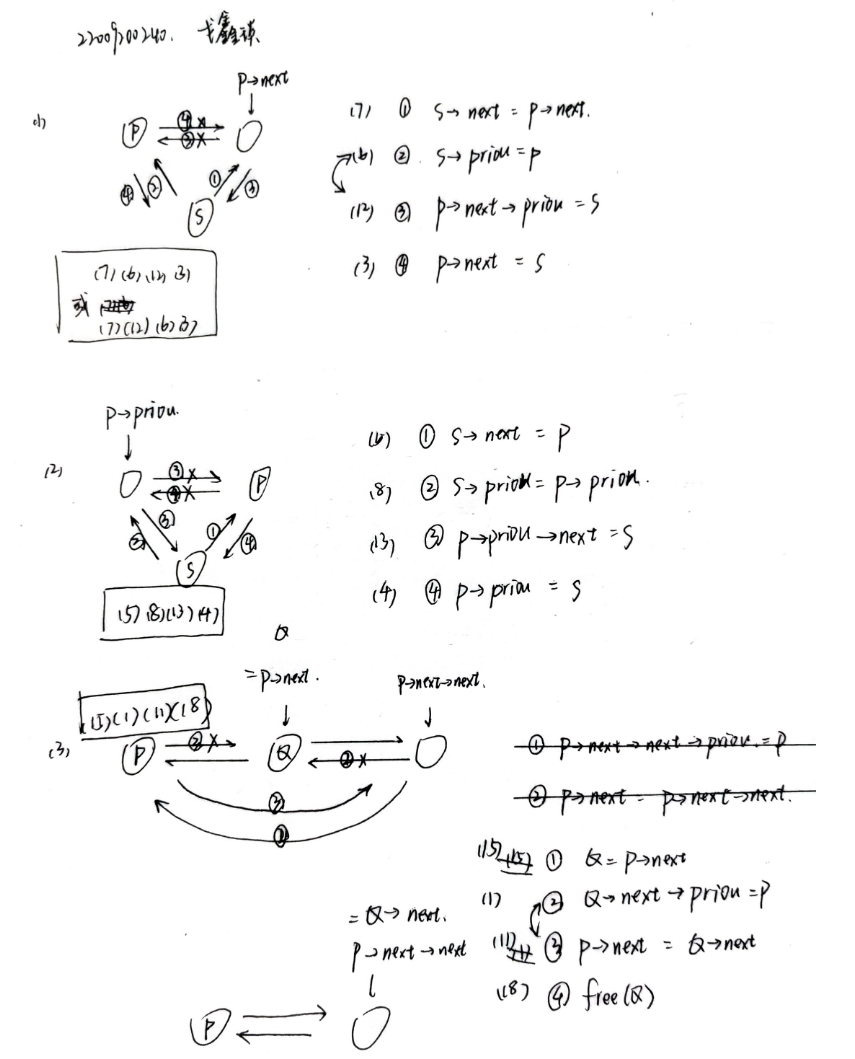 22009200240. 戈鑫
P→next
(1)
P
④ ×
③ ×
④ ② ① ③
S
(7) ① S→next = P→next.
(6) ② S→priou = P
(12) ③ P→next→priou = S
(3) ④ P→next = S
(7) (6) (12) (3)
或
(7) (12) (6) (3)
P→priou.
(2)
③ ×
④ ×
P
② ③ ① ④
S
① S→next = P
(8) ② S→priou = P→priou.
(13) ③ P→priou→next = S
(4) ④ P→priou = S
(5) (8) (13) (4)
Q
= P→next.
P→next→next.
(15) (1) (11) (18)
(3)
P
③ ×
Q
② ×
③
① P→next→next→priou. = P
② P→next = P→next→next.
(15) ① Q = P→next
(1) ② Q→next→priou = P
(11) ③ P→next = Q→next
(18) ④ free(Q)
= Q→next.
P→next→next
P